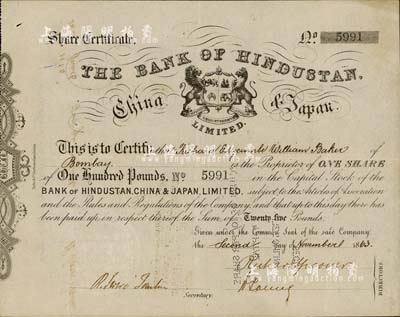 Share Certificate. No 5991
THE BANK OF HINDUSTAN,
China & Japan.
LIMITED.
This is to Certify that Richard William Baker of
Bombay is the Proprietor of ONE SHARE
of One Hundred Pounds, No 5991 in the Capital Stock of the
BANK OF HINDUSTAN, CHINA & JAPAN, LIMITED, subject to the Articles of Association
and the Rules and Regulations of the Company, and that up to this day there has
been paid up in respect thereof the Sum of Twenty five Pounds.
Given under the Common Seal of the said Company
the Second day of November 1863.
DIRECTORS
Secretary.